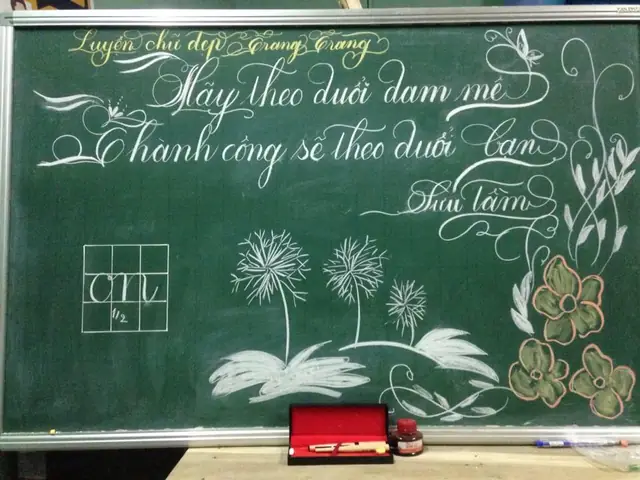 Luyện chữ đẹp Trang Trang
Hãy theo đuổi đam mê
Thành công sẽ theo đuổi bạn
Sưu tầm
1/2